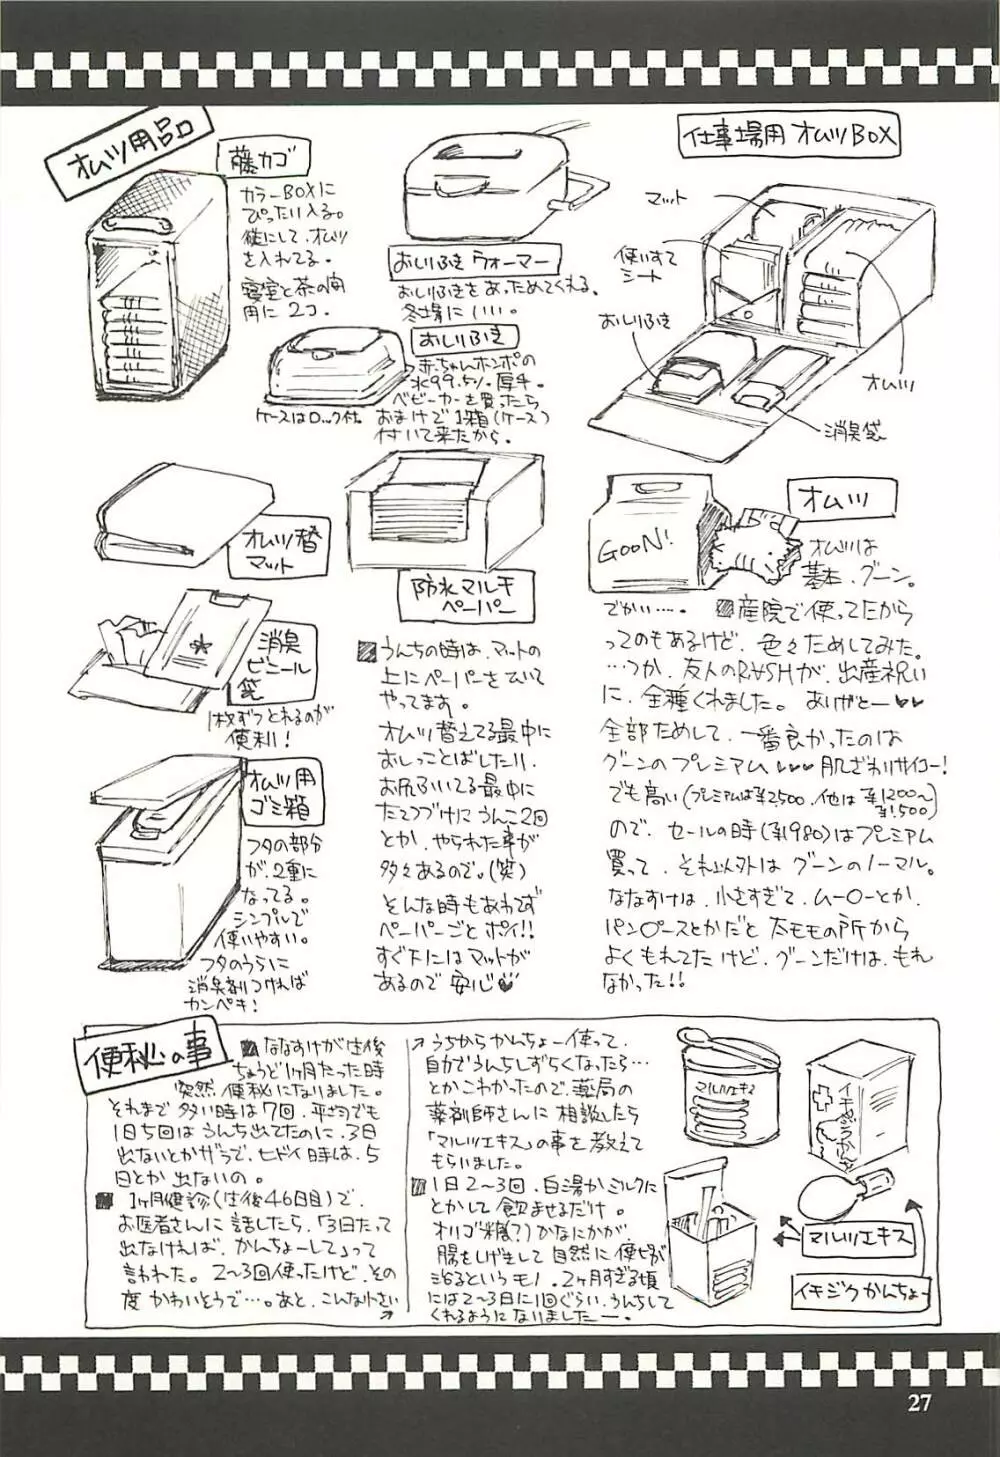 オムツ用品
藤カゴ
カラーBOXに
ぴったり入る。
横にして、オムツ
を入れてる。
寝室と茶の間
用に2コ。
おしりふきウォーマー
おしりふきをあっためてくれる。
冬場にいい。
おしりふき
赤ちゃんホンポの
水99.5%厚手。
ベビーカーを買ったら
おまけで1箱(ケース)
付いて来たから。
ケースはロック付。
仕事場用オムツBOX
マット
使いすて
シート
おしりふき
オムツ
消臭袋
オムツ替
マット
防水マルチ
ペーパー
■うんちの時は、マットの
上にペーパーをひいて
やってます。
オムツ替えてる最中に
おしっことばしたり、
お尻ふいてる最中に
たてつづけにうんこ2回
とか、やられた事が
多々あるので。(笑)
そんな時もあわてず
ペーパーごとポイ!!
すぐ下にはマットが
あるので安心♥
消臭
ビニール
袋
1枚ずつとれるのが
便利!
オムツ用
ゴミ箱
フタの部分
が、2重に
なってる。
シンプルで
使いやすい。
フタのうらに
消臭剤つければ
カンペキ!
オムツ
GOON!
オムツは
基本、グーン。
でかい…。■産院で使ってたから
ってのもあるけど、色々ためしてみた。
…つか、友人のRASHが、出産祝い
に、全種くれました。ありがとー♥♥
全部ためして、一番良かったのは
グーンのプレミアム♥♥♥肌ざわりサイコー!
でも高い(プレミアムは¥2500、他は¥1200〜
¥1,500)
ので、セールの時(¥1980)はプレミアム
買って、それ以外はグーンのノーマル。
ななすけは、小さすぎて、ムー○ーとか、
パン○ースとかだと太モモの所から
よくもれてたけど、グーンだけは、もれ
なかった!!
便秘の事
■ななすけが生後
ちょうど1ヶ月たった時
突然便秘になりました。
それまで多い時は7回、平均でも
1日5回はうんち出てたのに、3日
出ないとかザラで、ヒドイ時は、5
日とか出ないの。
■1ヶ月健診(生後46日目)で、
お医者さんに話したら、「3日たって
出なければ、かんちょーして」って
言われた。2〜3回使ったけど、その
度かわいそうで…。あと、こんな小さい
うちからかんちょー使って、
自力でうんちしずらくなったら…
とかこわかったので、薬局の
薬剤師さんに相談したら
「マルツエキス」の事を教えて
もらいました。
■1日2〜3回、白湯かミルクに
とかして飲ませるだけ。
オリゴ糖(?)かなにかが、
腸をしげきして自然に便秘が
治るというモノ。2ヶ月すぎる頃
には2〜3日に1回ぐらい、うんちして
くれるようになりましたー。
マルツエキス
イチジクかんちょう
マルツエキス
イチジクかんちょー
27